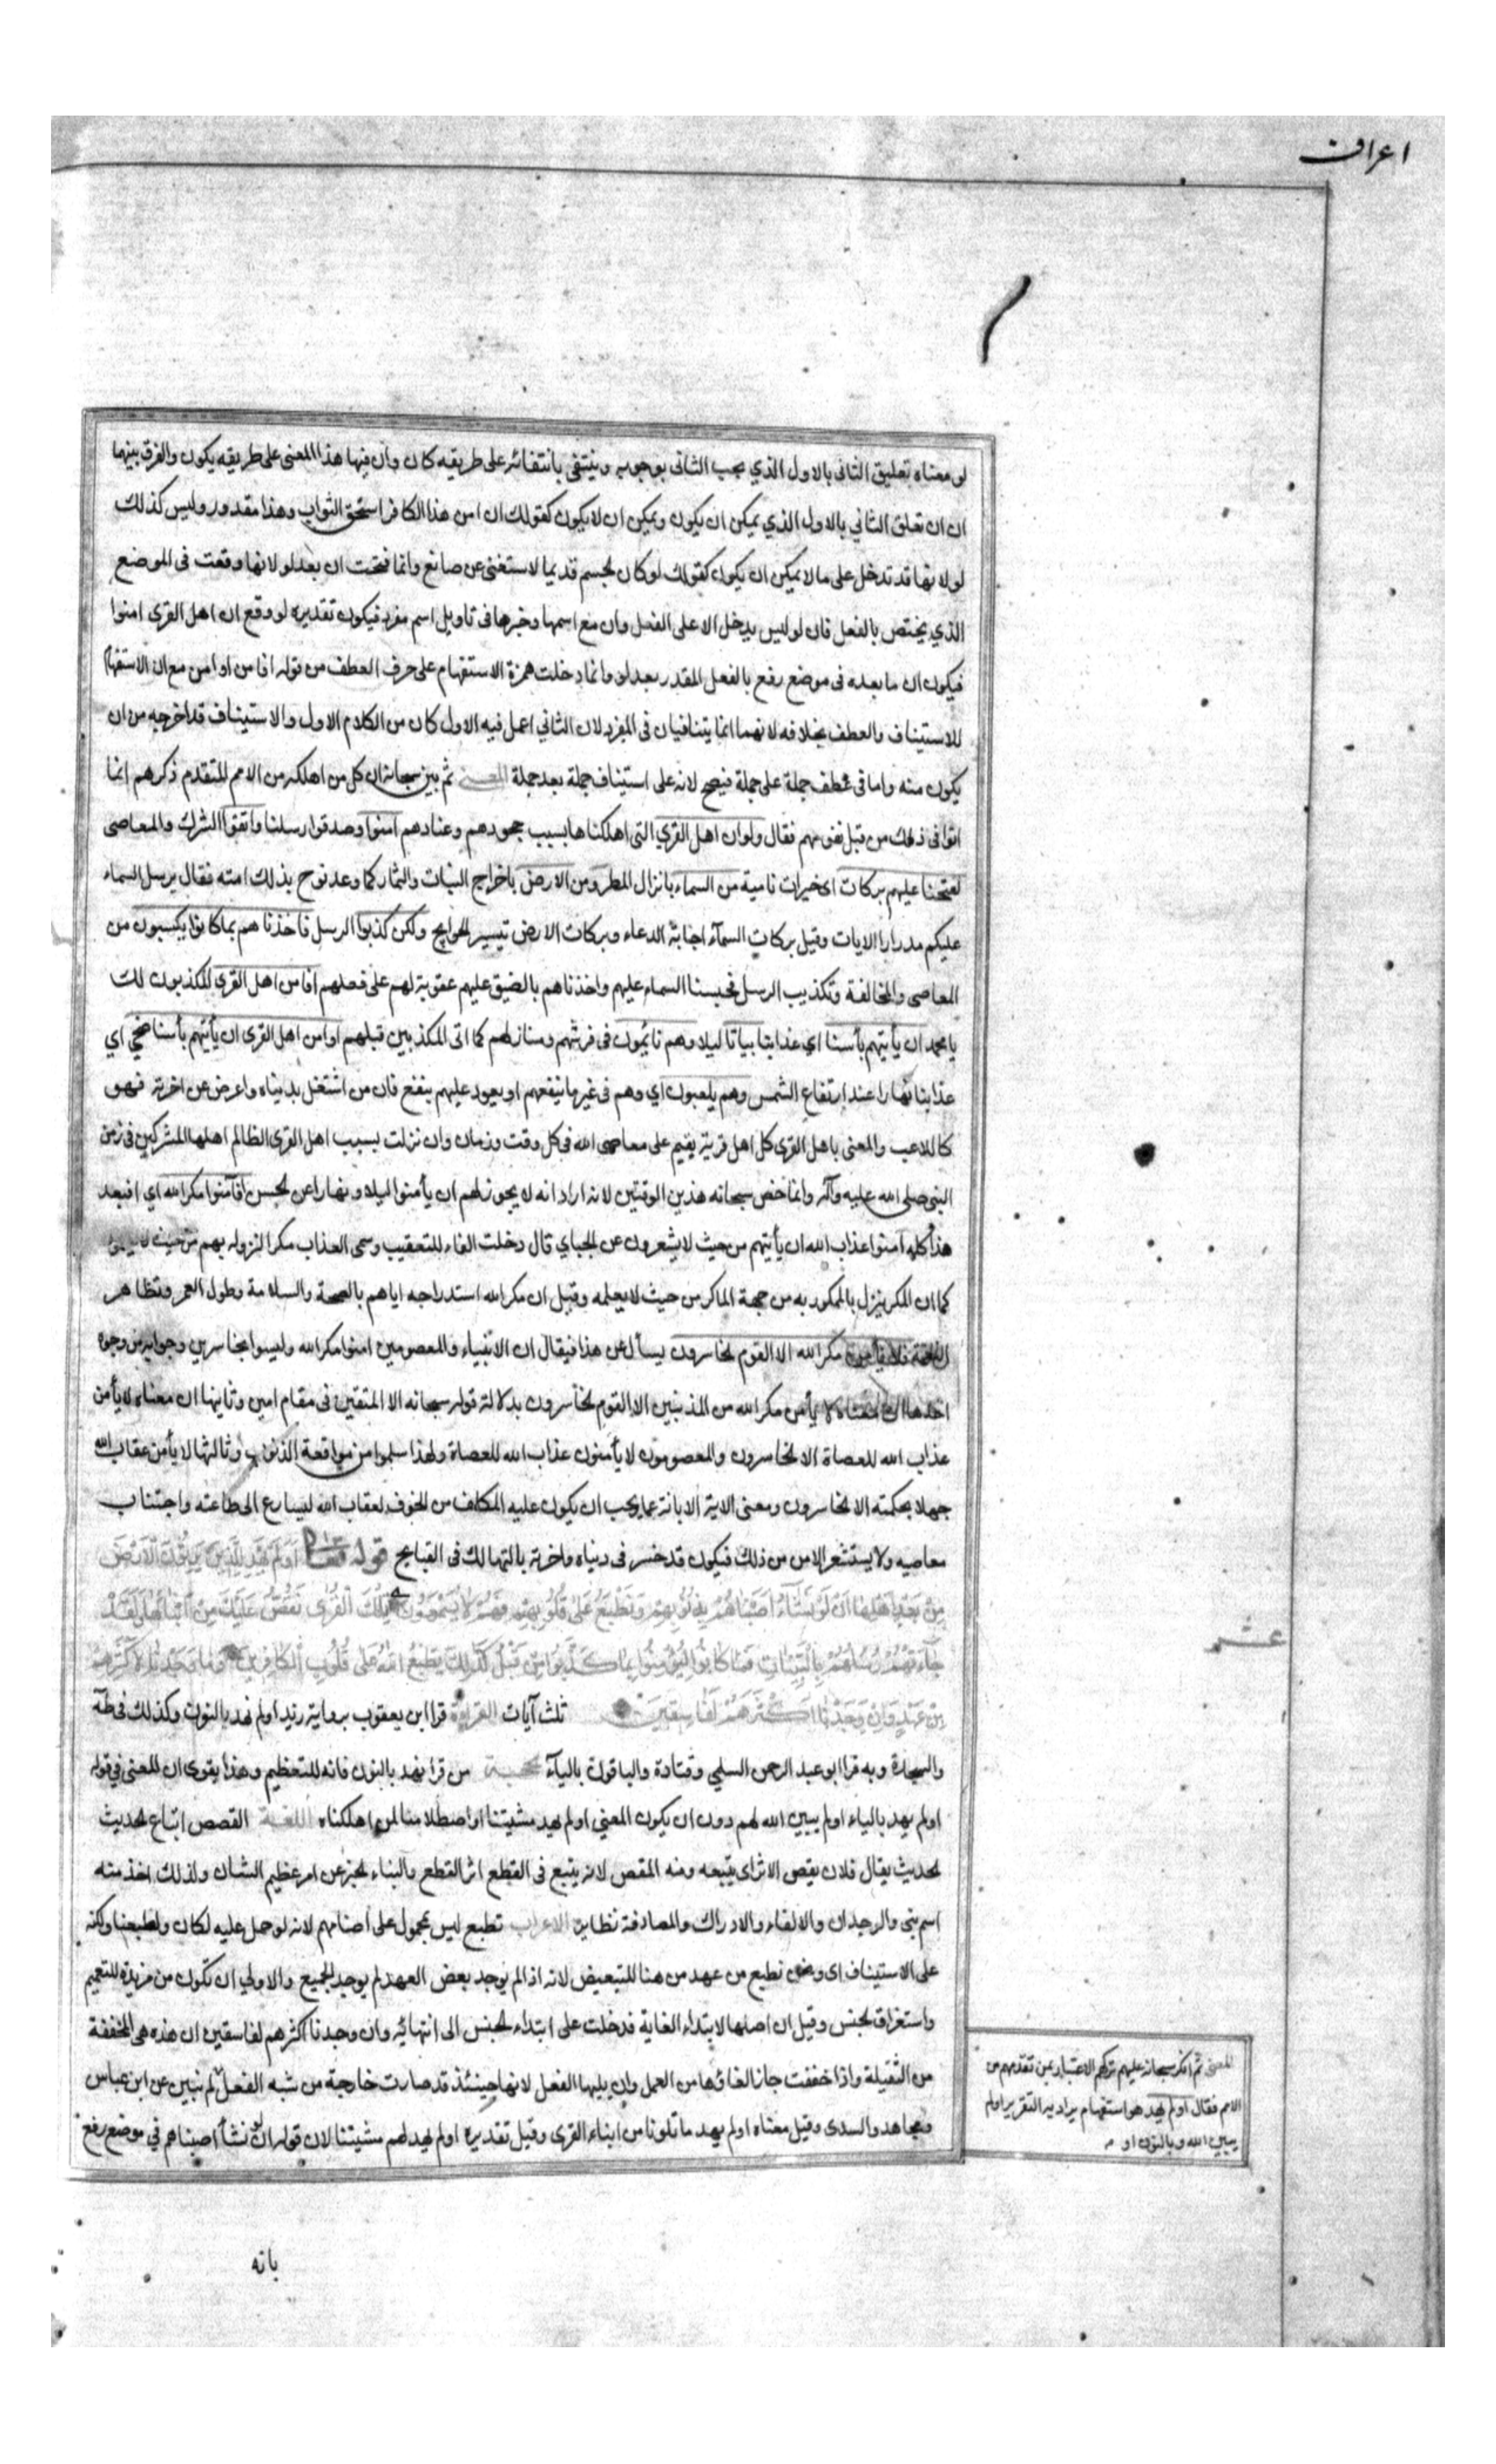 اعراف
لو معناه تعليق الثانى بالاول الذي يجب الثانى بوجوبه وينتفى بانتفائه على طريقه كان وان فيها هذا المعنى على طريقه يكون والفرق بينهما
ان ان تعلق الثاني بالاول الذي يمكن ان يكون ويمكن ان لا يكون كقولك ان امن هذا الكافر استحق الثواب وهذا مقدور وليس كذلك
لو لانها قد تدخل على ما لا يمكن ان يكون كقولك لو كان الجسم قديما لاستغنى عن صانع وانما فتحت ان بعد لو لانها وقعت فى الموضع
الذي يختص بالفعل فان لو ليس يدخل الا على الفعل وان مع اسمها وخبرها فى تاويل اسم مفرد فيكون تقديره لو وقع ان اهل القرى امنوا
فيكون ان ما بعده فى موضع رفع بالفعل المقدر بعد لو وانما دخلت همزة الاستفهام على حرف العطف من قوله افامن او امن مع ان الاستفهام
للاستيناف والعطف بخلافه لانهما انما يتنافيان فى المفرد لان الثاني اعمل فيه الاول كان من الكلام الاول والاستيناف قد اخرجه من ان
يكون منه واما فى عطف جملة على جملة فيصح لانه على استيناف جملة بعد جملة المعنى ثم بين سبحانه ان كل من اهلكه من الامم المتقدم ذكرهم انما
اتوا فى ذلك من قبل نفوسهم فقال ولو ان اهل القرى التى اهلكناها بسبب جحودهم وعنادهم امنوا وصدقوا رسلنا واتقوا الشرك والمعاصى
لفتحنا عليهم بركات اى خيرات نامية من السماء بانزال المطر ومن الارض باخراج النبات والثمار كما وعد نوح بذلك امته فقال يرسل السماء
عليكم مدرارا الايات وقيل بركات السمآء اجابة الدعاء وبركات الارض تيسير الحوايج ولكن كذبوا الرسل فاخذناهم بما كانوا يكسبون من
المعاصى والمخالفة وتكذيب الرسل فحبسنا السماء عليهم واخذناهم بالضيق عليهم عقوبة لهم على فعلهم افامن اهل القرى المكذبون لك
يا محمد ان يأتيهم بأسنا اي عذابنا بياتا ليلا وهم نائمون فى فرشهم ومنازلهم كما اتى المكذبين قبلهم او امن اهل القرى ان يأتيهم بأسنا ضحى اي
عذابنا نهارا عند ارتفاع الشمس وهم يلعبون اي وهم فى غير ما ينفعهم او يعود عليهم بنفع فان من اشتغل بدنياه واعرض عن اخرته فهو
كاللاعب والمعنى باهل القرى كل اهل قرية يقيم على معاصى الله فى كل وقت وزمان وان نزلت بسبب اهل القرى الظالم اهلها المشركين فى زمن
النبى صلى الله عليه وآله وانما خص سبحانه هذين الوقتين لانه اراد انه لا يجوز لهم ان يأمنوا ليلا ونهارا عن الحسن افآمنوا مكر الله اي افبعد
هذا كله آمنوا عذاب الله ان يأتيهم من حيث لا يشعرون عن الجباي قال دخلت الفاء للتعقيب وسمى العذاب مكرا لنزوله بهم من حيث لا يعلمون
كما ان المكر ينزل بالممكور به من جهة الماكر من حيث لا يعلمه وقيل ان مكر الله استدراجه اياهم بالصحة والسلامة وطول العمر وتظاهر
النعمة فلا يأمن مكر الله الا القوم الخاسرون يسأل عن هذا فيقال ان الانبياء والمعصومين امنوا مكر الله وليسوا بخاسرين وجوابه من وجوه
احدها ان معناه لا يأمن مكر الله من المذنبين الا القوم الخاسرون بدلالة قوله سبحانه الا المتقين فى مقام امين وثانيها ان معناه لا يأمن
عذاب الله للعصاة الا الخاسرون والمعصومون لا يأمنون عذاب الله للعصاة ولهذا سلموا من مواقعة الذنوب وثالثها لا يأمن عقاب الله
جهلا بحكمته الا الخاسرون ومعنى الاية الابانة عما يجب ان يكون عليه المكلف من الخوف لعقاب الله ليسارع الى طاعته واجتناب
معاصيه ولا يستشعر الامن من ذلك فيكون قد خسر فى دنياه واخرته بالتهالك فى القبايح قوله تعالى اَوَلَمْ يَهْدِ لِلَّذِينَ يَرِثُونَ الْاَرْضَ
مِنْ بَعْدِ اَهْلِهَا اَنْ لَوْ نَشَآءُ اَصَبْنَاهُمْ بِذُنُوبِهِمْ وَنَطْبَعُ عَلٰى قُلُوبِهِمْ فَهُمْ لَا يَسْمَعُونَ تِلْكَ الْقُرٰى نَقُصُّ عَلَيْكَ مِنْ اَنْبَآئِهَا وَلَقَدْ
جَآءَتْهُمْ رُسُلُهُمْ بِالْبَيِّنَاتِ فَمَا كَانُوا لِيُؤْمِنُوا بِمَا كَذَّبُوا مِنْ قَبْلُ كَذٰلِكَ يَطْبَعُ اللهُ عَلٰى قُلُوبِ الْكَافِرِينَ وَمَا وَجَدْنَا لِاَكْثَرِهِمْ
مِنْ عَهْدٍ وَاِنْ وَجَدْنَا اَكْثَرَهُمْ لَفَاسِقِينَ ثلث آيات القراءة قرا ابن يعقوب برواية زيد اولم نهد بالنون وكذلك فى طه
والسجدة وبه قرا ابو عبد الرحمن السلمي وقتادة والباقون باليآء الحجة من قرا نهد بالنون فانه للتعظيم وهذا يقوى ان المعنى فى قوله
اولم يهد بالياء اولم يبين الله لهم دون ان يكون المعني اولم يهد مشيتنا او اصطلامنا لمن اهلكناه اللغة القصص اتباع الحديث
الحديث يقال فلان يقص الاثر اى يتبعه ومنه المقص لانه يتبع فى القطع اثر القطع والنباء الخبر عن امر عظيم الشان ولذلك اخذ منه
اسم نبى والوجدان والالفاء والادراك والمصادفة نظاير الاعراب نطبع ليس بمحمول على اصناهم لانه لو حمل عليه لكان ولطبعنا ولكنه
على الاستيناف اى ونحن نطبع من عهد من هنا للتبعيض لانه اذا لم يوجد بعض العهد لم يوجد الجميع والاولى ان تكون من مزيدة للتعميم
واستغراق الجنس وقيل ان اصلها لابتداء الغاية فدخلت على ابتداء الجنس الى انتهائه وان وجدنا اكثرهم لفاسقين ان هذه هى المخففة
من الثقيلة واذا خففت جاز الغاؤها من العمل وان يليها الفعل لانها حينئذ قد صارت خارجة من شبه الفعل لم نبين عن ابن عباس
ومجاهد والسدى وقيل معناه اولم يهد ما تلونا من ابناء القرى وقيل تقديره اولم يهد لهم مشيتنا لان قوله ان لو نشآ اصبناهم في موضع رفع
عشر
المعنى ثم انكر سبحانه عليهم تركهم الاعتبار بمن تقدمهم من
الامم فقال اولم يهد هو استفهام يراد به التقرير اولم
يبين الله وبالنون او
بانه